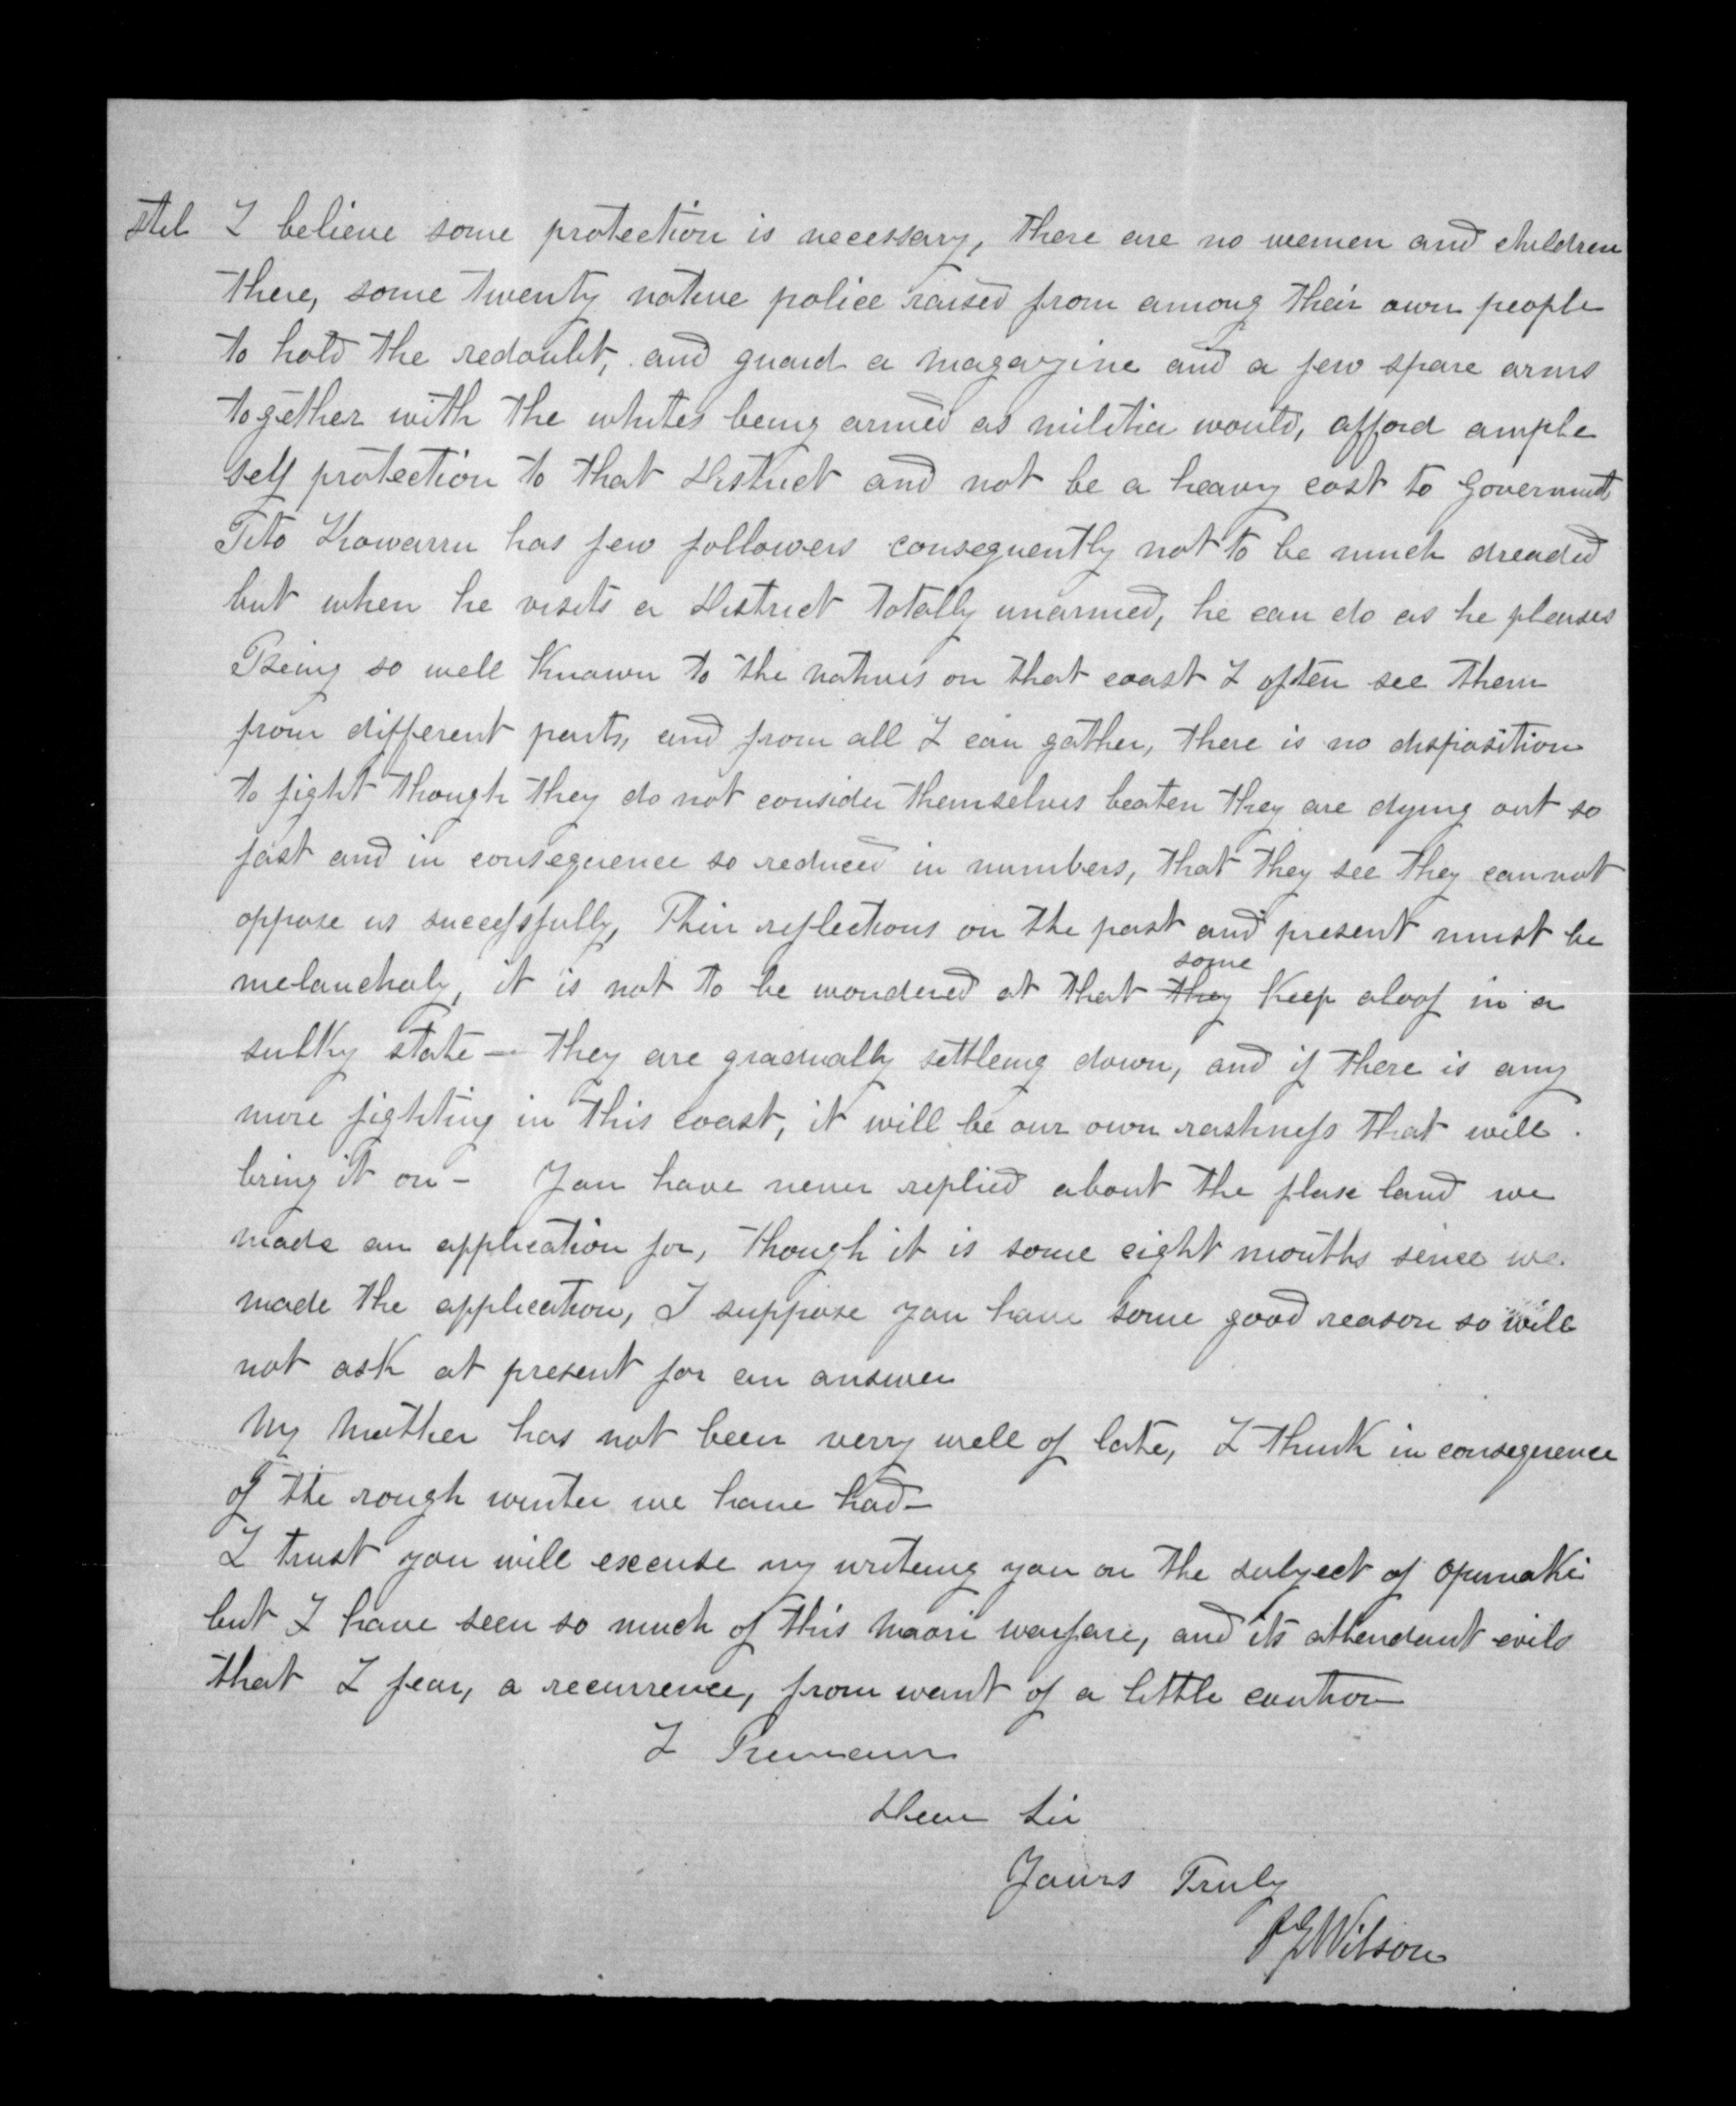 Stil I believe some protection is necessary, there are no wemen and children
there, some twenty native police raised from among their own people
to hold the redoubt, and guard a magazine and a few spare arms
together with the whites being armed as militia would, afford ample
self protection to that District and not be a heavy cost to Government
Tito Kowarru has few followers consequently not to be much dreaded
but when he visits a District totally unarmed, he can do as he pleases
Being so well Known to the natives on that coast I often see them
from different parts, and from all I can gather, there is no disposition
to fight though they do not consider themselves beaten they are dying out so
fast and in consequence so reduced in numbers, that they see they cannot
oppose us successfully, Their reflections on the past and present must be
melancholy, it is not to be wondered at that they some Keep aloof in a
sulky state — they are gradually settleing down, and if there is any
more fighting in this coast, it will be our own rashness that will
bring it on – You have never replied about the land we
made an application for, though it is some eight months since we
made the application, I suppose you have some good reason so will
not ask at present for an answer
My Mother has not been verry well of late, I think in consequence
of the rough winter we have had –
I trust you will excuse my writeing you on the subject of Opunake
but I have seen so much of this Maori warfare, and its attendant evils
that I fear, a recurrence, from want of a little caution
I Remain
Dear Sir
Yours Truly
P G Wilson